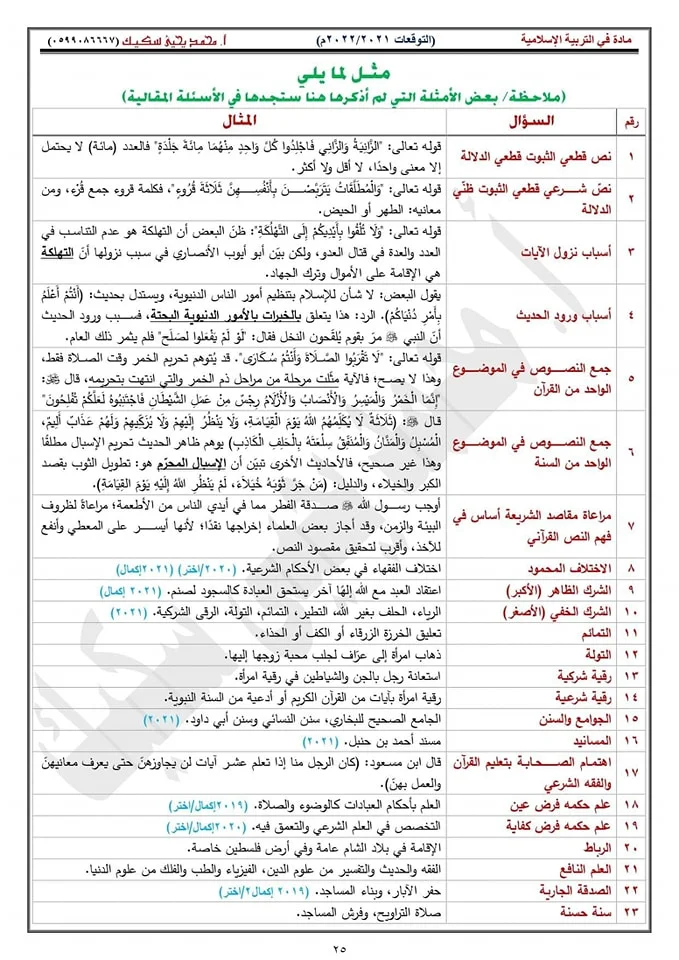 مادة في التربية الإسلامية (التوقعات ٢٠٢١/٢٠٢٢م) أ. محمد يحيى سكيك (٠٥٩٩٠٨٦٦٦٧)
مثل لما يلي
(ملاحظة/ بعض الأمثلة التي لم أذكرها هنا ستجدها في الأسئلة المقالية)
رقم السؤال المثال
١ نص قطعي الثبوت قطعي الدلالة قوله تعالى: "الزَّانِيَةُ وَالزَّانِي فَاجْلِدُوا كُلَّ وَاحِدٍ مِنْهُمَا مِائَةَ جَلْدَةٍ" فالعدد (مائة) لا يحتمل
إلا معنى واحدًا، لا أقل ولا أكثر.
٢ نصّ شرعي قطعي الثبوت ظنّي قوله تعالى: "وَالْمُطَلَّقَاتُ يَتَرَبَّصْنَ بِأَنْفُسِهِنَّ ثَلَاثَةَ قُرُوءٍ"، فكلمة قروء جمع قُرْء، ومن
الدلالة معانيه: الطهر أو الحيض.
٣ أسباب نزول الآيات قوله تعالى: "وَلَا تُلْقُوا بِأَيْدِيكُمْ إِلَى التَّهْلُكَةِ": ظنّ البعض أن التهلكة هو عدم التناسب في
العدد والعدة في قتال العدو، ولكن بيّن أبو أيوب الأنصاري في سبب نزولها أنّ التهلكة
هي الإقامة على الأموال وترك الجهاد.
٤ أسباب ورود الحديث يقول البعض: لا شأن للإسلام بتنظيم أمور الناس الدنيوية، ويستدل بحديث: (أَنْتُمْ أَعْلَمُ
بِأَمْرِ دُنْيَاكُمْ). الرد: هذا يتعلق بالخبرات بالأمور الدنيوية البحتة، فسبب ورود الحديث
أنّ النبي ﷺ مرّ بقوم يُلقّحون النخل فقال: "لَوْ لَمْ يَفْعَلُوا لَصَلَحَ" فلم يثمر ذلك العام.
٥ جمع النصوص في الموضوع قوله تعالى: "لَا تَقْرَبُوا الصَّلَاةَ وَأَنْتُمْ سُكَارَى". قد يُتوهم تحريم الخمر وقت الصلاة فقط،
الواحد من القرآن وهذا لا يصح؛ فالآية مثّلت مرحلة من مراحل ذم الخمر والتي انتهت بتحريمه، قال ﷻ:
"إِنَّمَا الْخَمْرُ وَالْمَيْسِرُ وَالْأَنْصَابُ وَالْأَزْلَامُ رِجْسٌ مِنْ عَمَلِ الشَّيْطَانِ فَاجْتَنِبُوهُ لَعَلَّكُمْ تُفْلِحُونَ"
٦ جمع النصوص في الموضوع قال ﷺ: (ثَلَاثَةٌ لَا يُكَلِّمُهُمُ اللهُ يَوْمَ الْقِيَامَةِ، وَلَا يَنْظُرُ إِلَيْهِمْ وَلَا يُزَكِّيهِمْ وَلَهُمْ عَذَابٌ أَلِيمٌ،
الواحد من السنة الْمُسْبِلُ وَالْمَنَّانُ وَالْمُنَفِّقُ سِلْعَتَهُ بِالْحَلِفِ الْكَاذِبِ) يوهم ظاهر الحديث تحريم الإسبال مطلقًا
وهذا غير صحيح، فالأحاديث الأخرى تبيّن أن الإسبال المحرّم هو: تطويل الثوب بقصد
الكبر والخيلاء، والدليل: (مَنْ جَرَّ ثَوْبَهُ خُيَلَاءَ، لَمْ يَنْظُرِ اللهُ إِلَيْهِ يَوْمَ الْقِيَامَةِ).
٧ مراعاة مقاصد الشريعة أساس في أوجب رسول الله ﷺ صدقة الفطر مما في أيدي الناس من الأطعمة؛ مراعاةً لظروف
فهم النص القرآني البيئة والزمن، وقد أجاز بعض العلماء إخراجها نقدًا؛ لأنها أيسر على المعطي وأنفع
للآخذ، وأقرب لتحقيق مقصود النص.
٨ الاختلاف المحمود اختلاف الفقهاء في بعض الأحكام الشرعية. (٢٠٢٠/اختر) (٢٠٢١إكمال)
٩ الشرك الظاهر (الأكبر) اعتقاد العبد مع الله إلهًا آخر يستحق العبادة كالسجود لصنم. (٢٠٢١ إكمال)
١٠ الشرك الخفي (الأصغر) الرياء، الحلف بغير الله، التطير، التمائم، التولة، الرقى الشركية. (٢٠٢١)
١١ التمائم تعليق الخرزة الزرقاء أو الكف أو الحذاء.
١٢ التولة ذهاب امرأة إلى عرّاف لجلب محبة زوجها إليها.
١٣ رقية شركية استعانة رجل بالجن والشياطين في رقية امرأة.
١٤ رقية شرعية رقية امرأة بآيات من القرآن الكريم أو أدعية من السنة النبوية.
١٥ الجوامع والسنن الجامع الصحيح للبخاري، سنن النسائي وسنن أبي داود. (٢٠٢١)
١٦ المسانيد مسند أحمد بن حنبل. (٢٠٢١)
١٧ اهتمام الصحابة بتعليم القرآن قال ابن مسعود: (كان الرجل منا إذا تعلم عشر آيات لن يجاوزهنّ حتى يعرف معانيهنّ
والفقه الشرعي والعمل بهنّ).
١٨ علم حكمه فرض عين العلم بأحكام العبادات كالوضوء والصلاة. (٢٠١٩إكمال/اختر)
١٩ علم حكمه فرض كفاية التخصص في العلم الشرعي والتعمق فيه. (٢٠٢٠إكمال/اختر)
٢٠ الرباط الإقامة في بلاد الشام عامة وفي أرض فلسطين خاصة.
٢١ العلم النافع الفقه والحديث والتفسير من علوم الدين، الفيزياء والطب والفلك من علوم الدنيا.
٢٢ الصدقة الجارية حفر الآبار، وبناء المساجد. (٢٠١٩ إكمال٢/اختر)
٢٣ سنة حسنة صلاة التراويح، وفرش المساجد.
٢٥